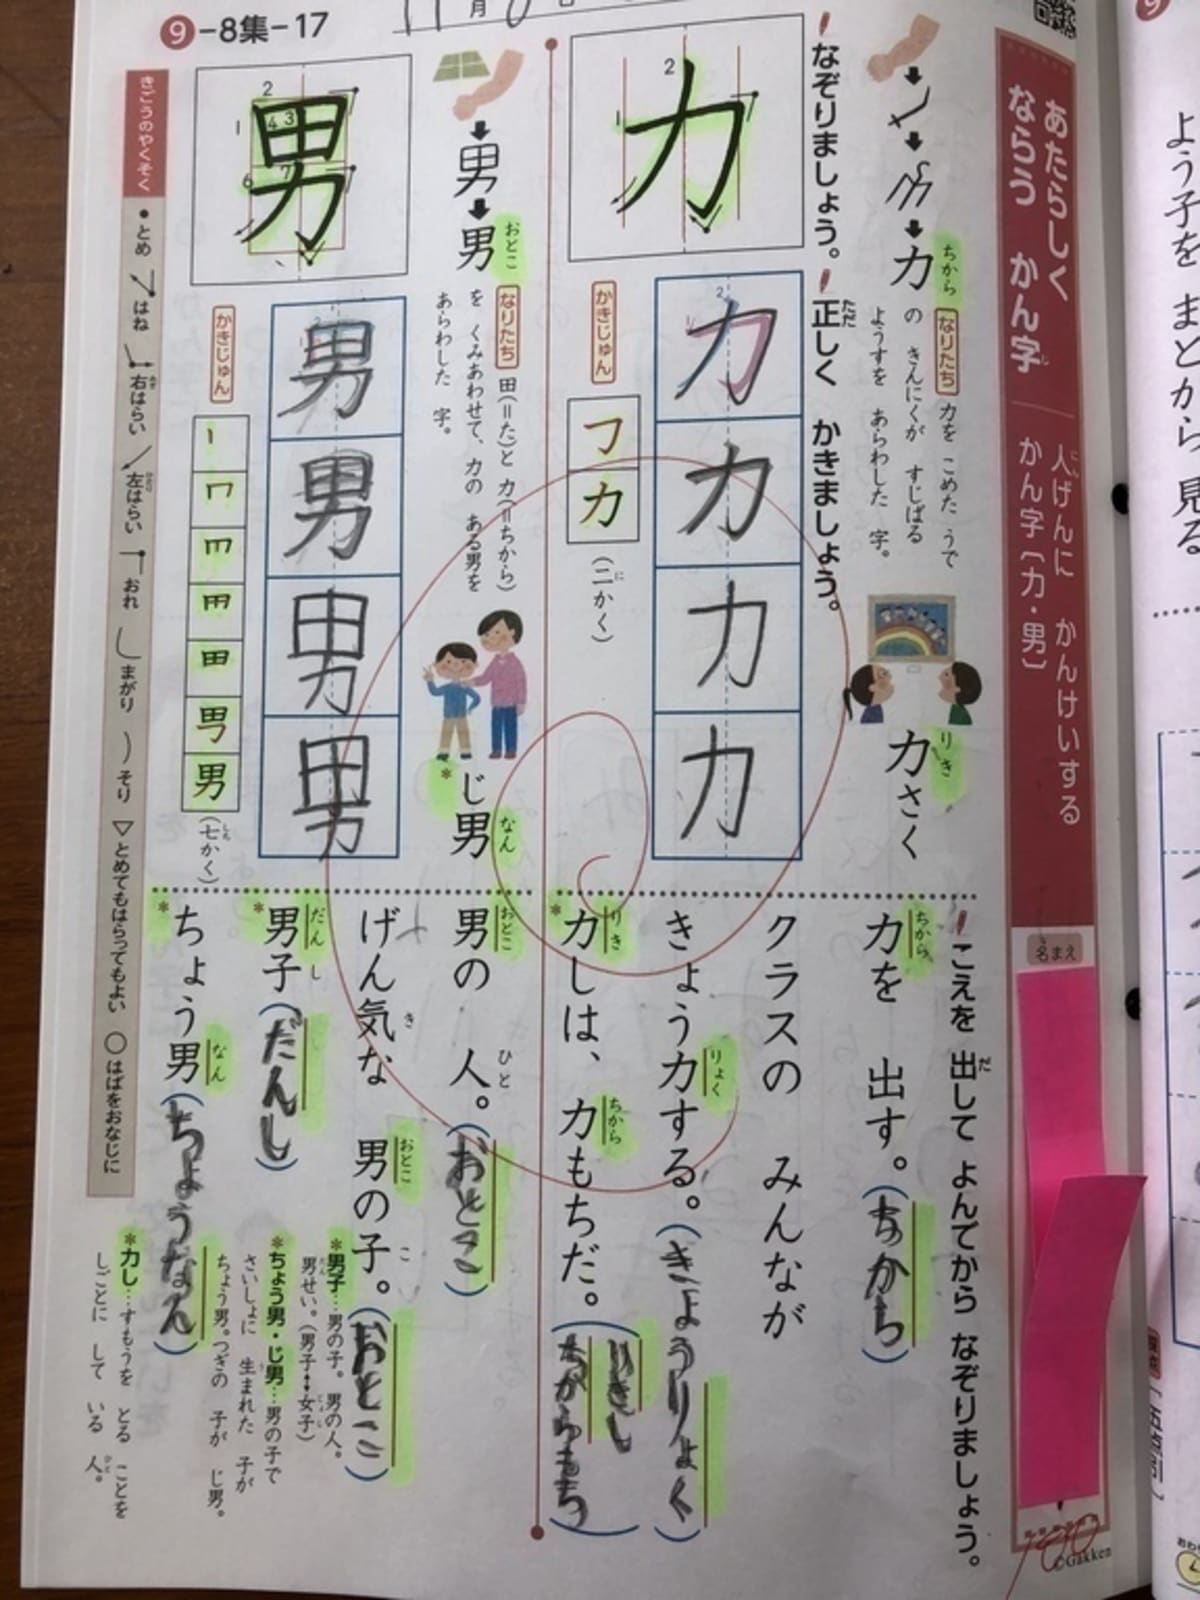 9-8集-17
あたらしく ならう かん字
人げんに かんけいする かん字〔力・男〕
名まえ
なぞりましょう。
正しく かきましょう。
こえを 出して よんでから なぞりましょう。
力
ちから
なりたち 力を こめた うで
の きんにくが すじばる
ようすを あらわした 字。
りき
力さく
力
かきじゅん
フ
力
(二かく)
力
力
力
力
力を 出す。(ちから)
クラスの みんなが
きょう力する。(きょうりょく)
力しは、力もちだ。(りきし
ちからもち)
男
男
おとこ
男
なりたち 田(=た)と 力(=ちから)
を くみあわせて、力の ある男を
あらわした 字。
じ男
なん
かきじゅん
男
(七かく)
男
男
男
男
男の 人。(おとこ)
げん気な 男の子。(おとこ)
男子(だんし)
ちょう男(ちょうなん)
*男子…男の子。男の人。
男せい。(男子↔女子)
*ちょう男・じ男…男の子で
さいしょに 生まれた 子が
ちょう男。つぎの 子が じ男。
*力し…すもうを とる ことを
しごとに して いる 人。
きごうのやくそく
●とめ はね 右はらい 左はらい おれ まがり そり ▽とめてもはらってもよい ○はばをおなじに
100
©Gakken
よう子を まとから 見る